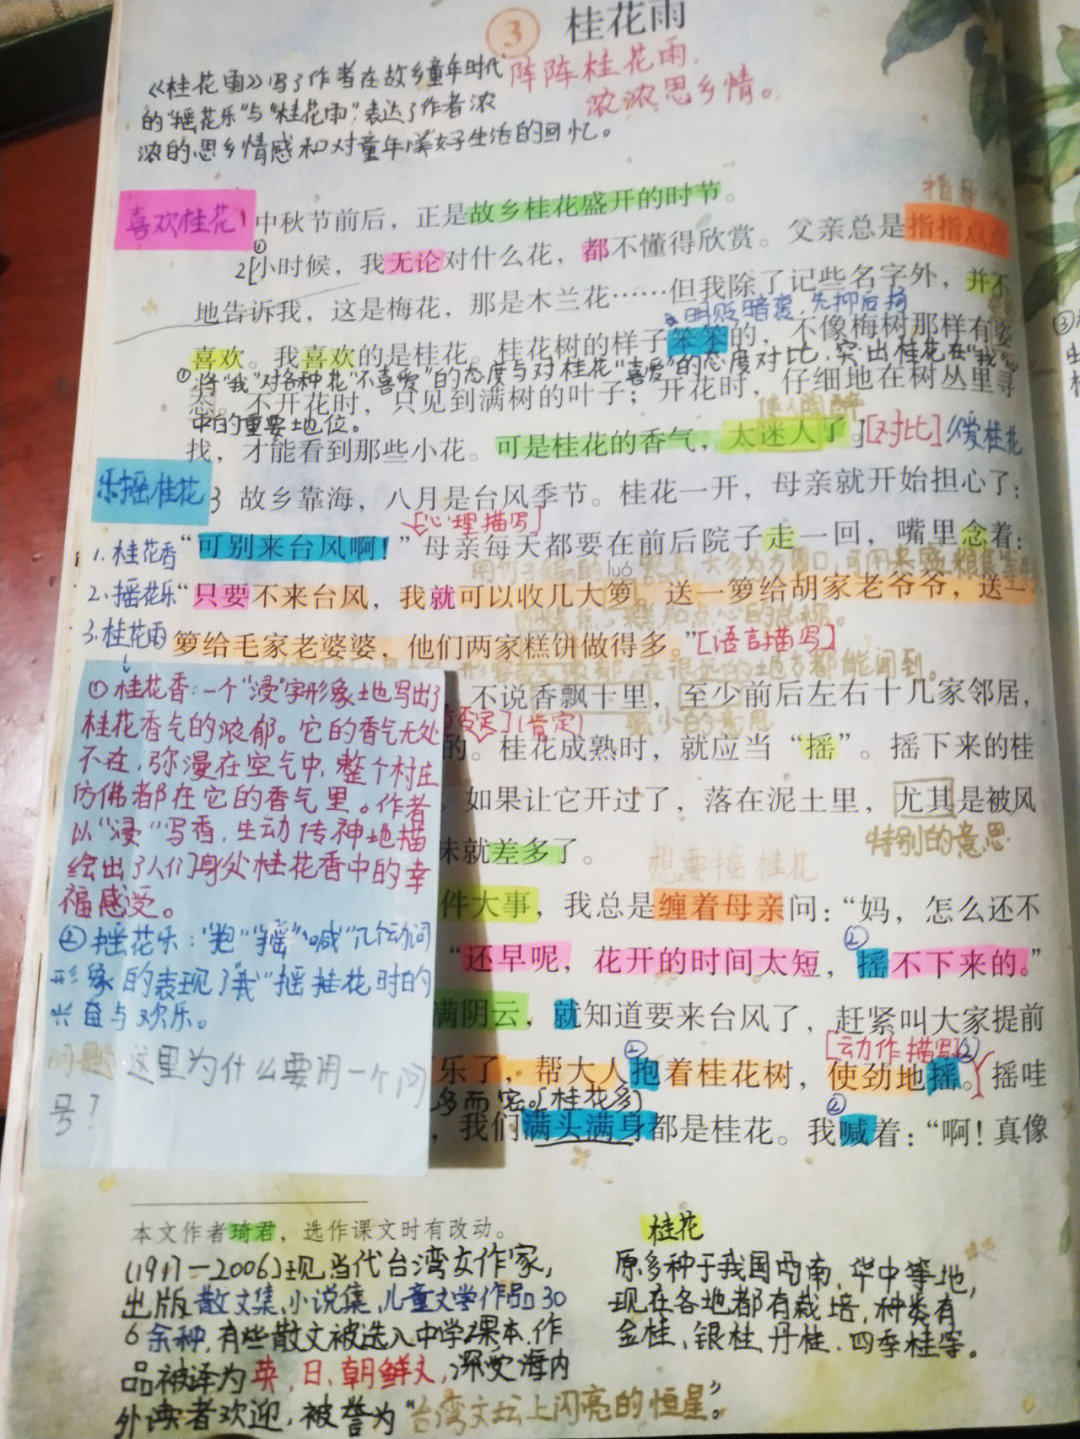 3 桂花雨
《桂花雨》写了作者在故乡童年时代
的"摇花乐"与"桂花雨",表达了作者浓
浓的思乡情感和对童年美好生活的回忆。
阵阵桂花雨,
浓浓思乡情。
喜欢桂花
1 中秋节前后，正是故乡桂花盛开的时节。
2[小时候，我无论对什么花，都不懂得欣赏。父亲总是指指点点
地告诉我，这是梅花，那是木兰花……但我除了记些名字外，并不
②明贬暗褒,先抑后扬
喜欢。我喜欢的是桂花。桂花树的样子笨笨的，不像梅树那样有姿
①将"我"对各种花"不喜爱"的态度与对桂花"喜爱"的态度对比,突出桂花在"我"心
中的重要地位。
态。不开花时，只见到满树的叶子；开花时，仔细地在树丛里寻
找，才能看到那些小花。可是桂花的香气，太迷人了。][对比]
爱桂花
乐摇桂花
3 故乡靠海，八月是台风季节。桂花一开，母亲就开始担心了：
[心理描写]
"可别来台风啊！"母亲每天都要在前后院子走一回，嘴里念着：
luó
"只要不来台风，我就可以收几大箩。送一箩给胡家老爷爷，送一
箩给毛家老婆婆，他们两家糕饼做得多。"[语言描写]
1.桂花香
2.摇花乐
3.桂花雨
不说香飘十里，至少前后左右十几家邻居，
(肯定)
最少的意思
的。桂花成熟时，就应当"摇"。摇下来的桂
如果让它开过了，落在泥土里，尤其是被风
特别的意思
味就差多了。
想要摇桂花
件大事，我总是缠着母亲问："妈，怎么还不
"还早呢，花开的时间太短，摇不下来的。"
②
满阴云，就知道要来台风了，赶紧叫大家提前
[动作描写]②
乐了，帮大人抱着桂花树，使劲地摇。摇哇
②
[桂花多]
，我们满头满身都是桂花。我喊着："啊！真像
②
①桂花香:一个"浸"字形象地写出了
桂花香气的浓郁。它的香气无处
不在,弥漫在空气中,整个村庄
仿佛都在它的香气里。作者
以"浸"写香,生动传神地描
绘出了人们身处桂花香中的幸
福感受。
②摇花乐:"抱""摇""喊"几个动词
形象的表现了"我"摇桂花时的
兴奋与欢乐。
问题 这里为什么要用一个问
号?
本文作者琦君，选作课文时有改动。
(1917—2006)现当代台湾女作家,
出版散文集,小说集,儿童文学作品30
余种,有些散文被选入中学课本,作
品被译为英,日,朝鲜文,深受海内
外读者欢迎,被誉为"台湾文坛上闪亮的恒星"。
桂花
原多种于我国西南,华中等地,
现在各地都有栽培,种类有
金桂、银桂、丹桂、四季桂等。